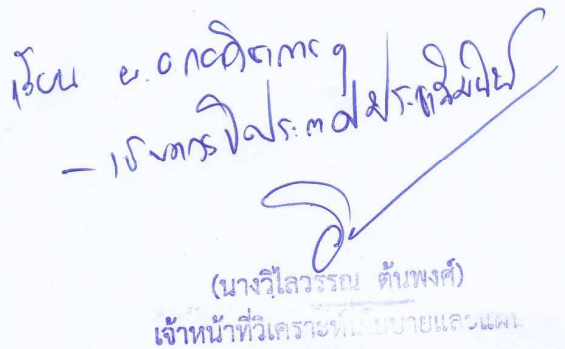 เรียน ผ.อ กองวิชาการฯ
- เห็นควรปิดประกาศประชาสัมพันธ์
(นางวิไลวรรณ ตันพงศ์)
เจ้าหน้าที่วิเคราะห์นโยบายและแผน